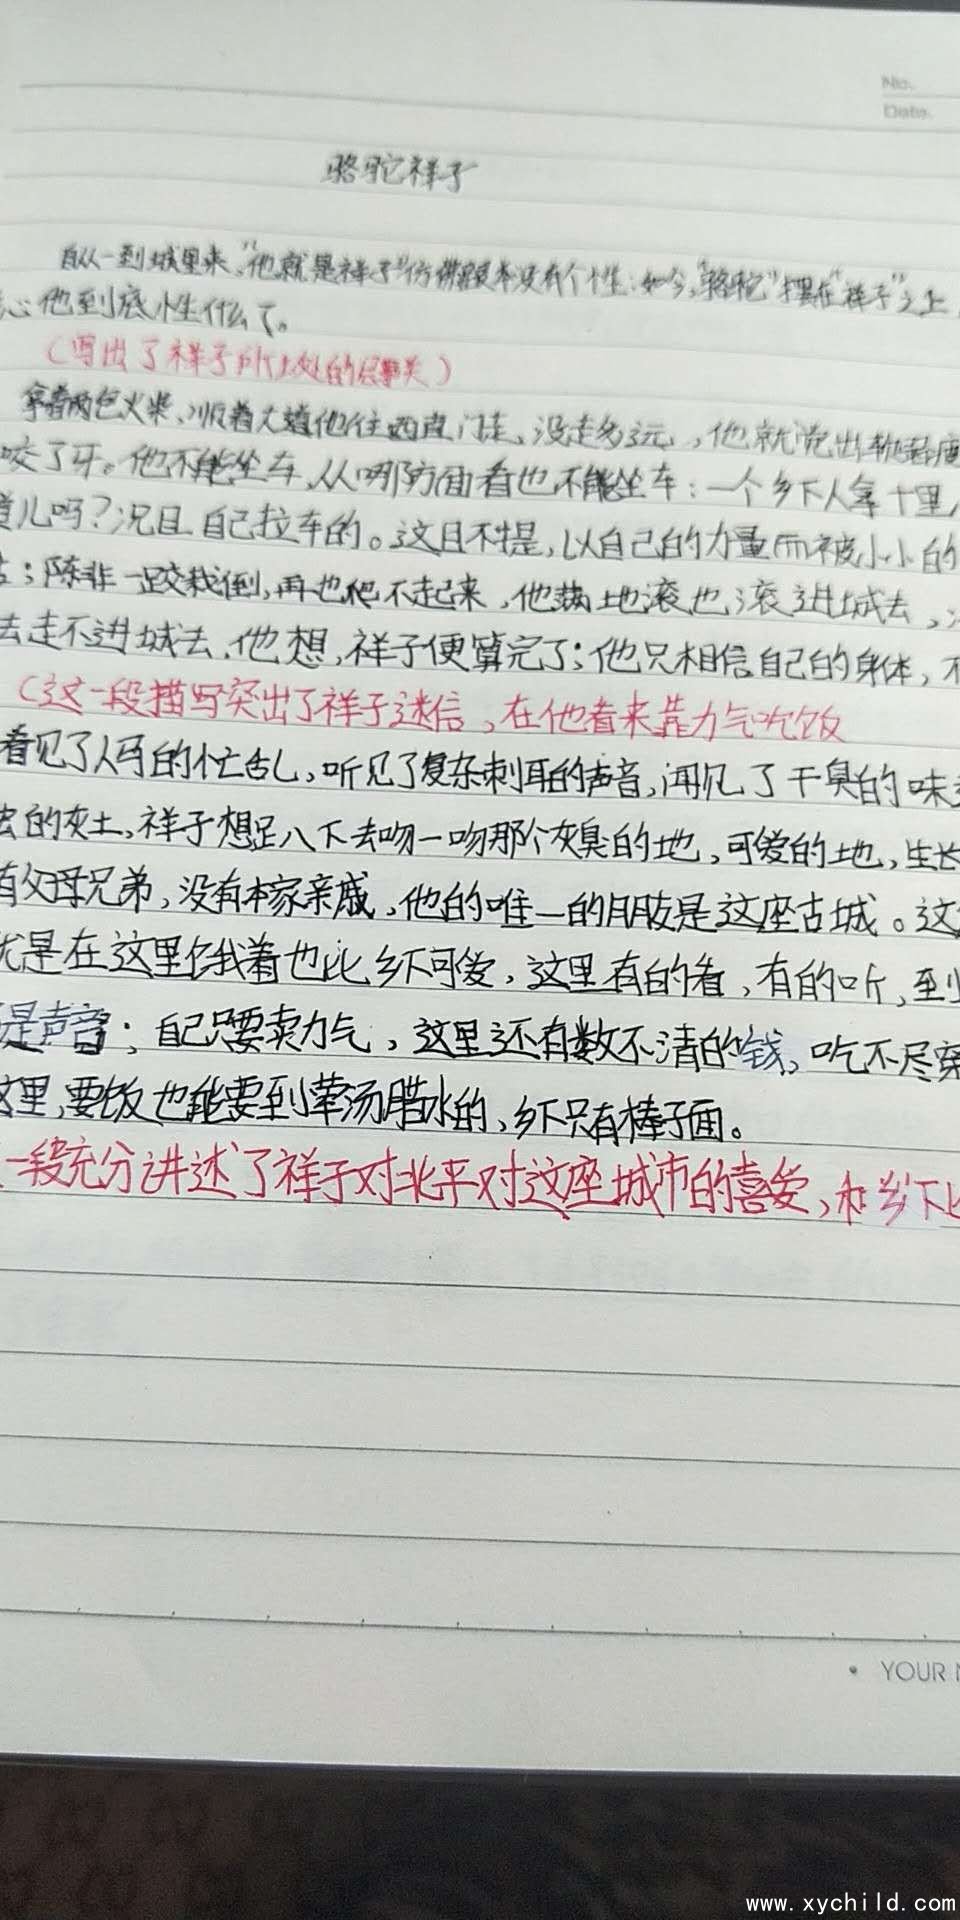 No.
Date.
骆驼祥子
自从一到城里来,"他就是祥子"仿佛根本没有个性;如今,"骆驼"摆在"祥子"之上
心他到底性什么了。
(写出了祥子所处的
拿着两包火柴、顺着大道他往西直门走,没走多远,他就觉出软
咬了牙。他不能坐车,从哪方面看也不能坐车:一个乡下人拿十里
儿吗?况且自己拉车的。这且不提,以自己的力量而被小小的
;除非一跤栽倒,再也爬不起来,他满地滚也滚进城去,
去走不进城去,他想,祥子便算完了;他只相信自己的身体,不
(这一段描写突出了祥子迷信,在他看来靠力气吃饭
看见了人马的忙乱,听见了复杂刺耳的声音,闻见了干臭的味
的灰土,祥子想足八下去吻一吻那个灰臭的地,可爱的地,生长
有父母兄弟,没有本家亲戚,他的唯一的朋友是这座古城。这
就是在这里饿着也比乡下可爱,这里有的看,有的听,至少
是声音;自己只要卖力气,这里还有数不清的钱,吃不尽穿
这里,要饭也能要到荤汤腊水的,乡下只有棒子面。
一段充分讲述了祥子对北平对这座城市的喜爱,和乡下比
• YOUR
www.xychild.com